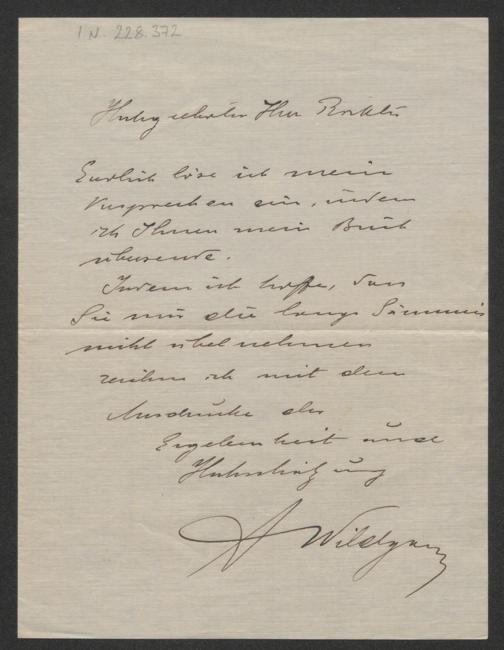 I N. 228.372
Hochgeehrter Herr Doktor
Endlich löse ich mein
Versprechen ein, indem
ich Ihnen mein Buch
übersende.
Indem ich hoffe, dass
Sie mir die lange Säumnis
nicht übel nehmen
zeichne ich mit dem
Ausdrucke der
Ergebenheit und
Hochschätzung
A Wildgans